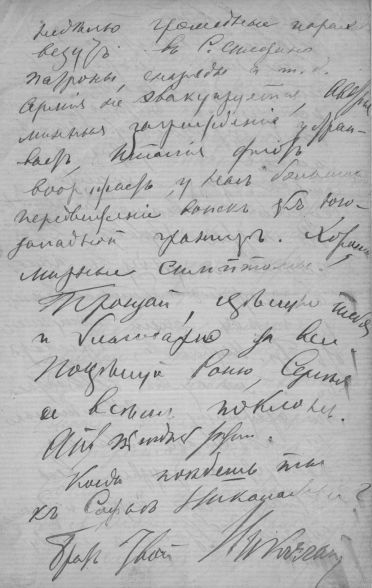 недѣлю громадные парах
везутъ въ С. Стефано
патроны, снаряды и т. д.
Армія не эвакуируется,
минныя загражденія устраи
ваетъ, Италія флотъ
вооружаетъ, у насъ большое
передвиженіе войскъ къ юго-
западной границѣ. Хороши
мирные симптомы!
Прощай, цѣлую тебя
и благодарю за все.
Поцѣлуй Ваню, Сережу
и всѣмъ поклоны.
Когда поѣдешь ты
къ Софьѣ Николаевнѣ?
Братъ Твой